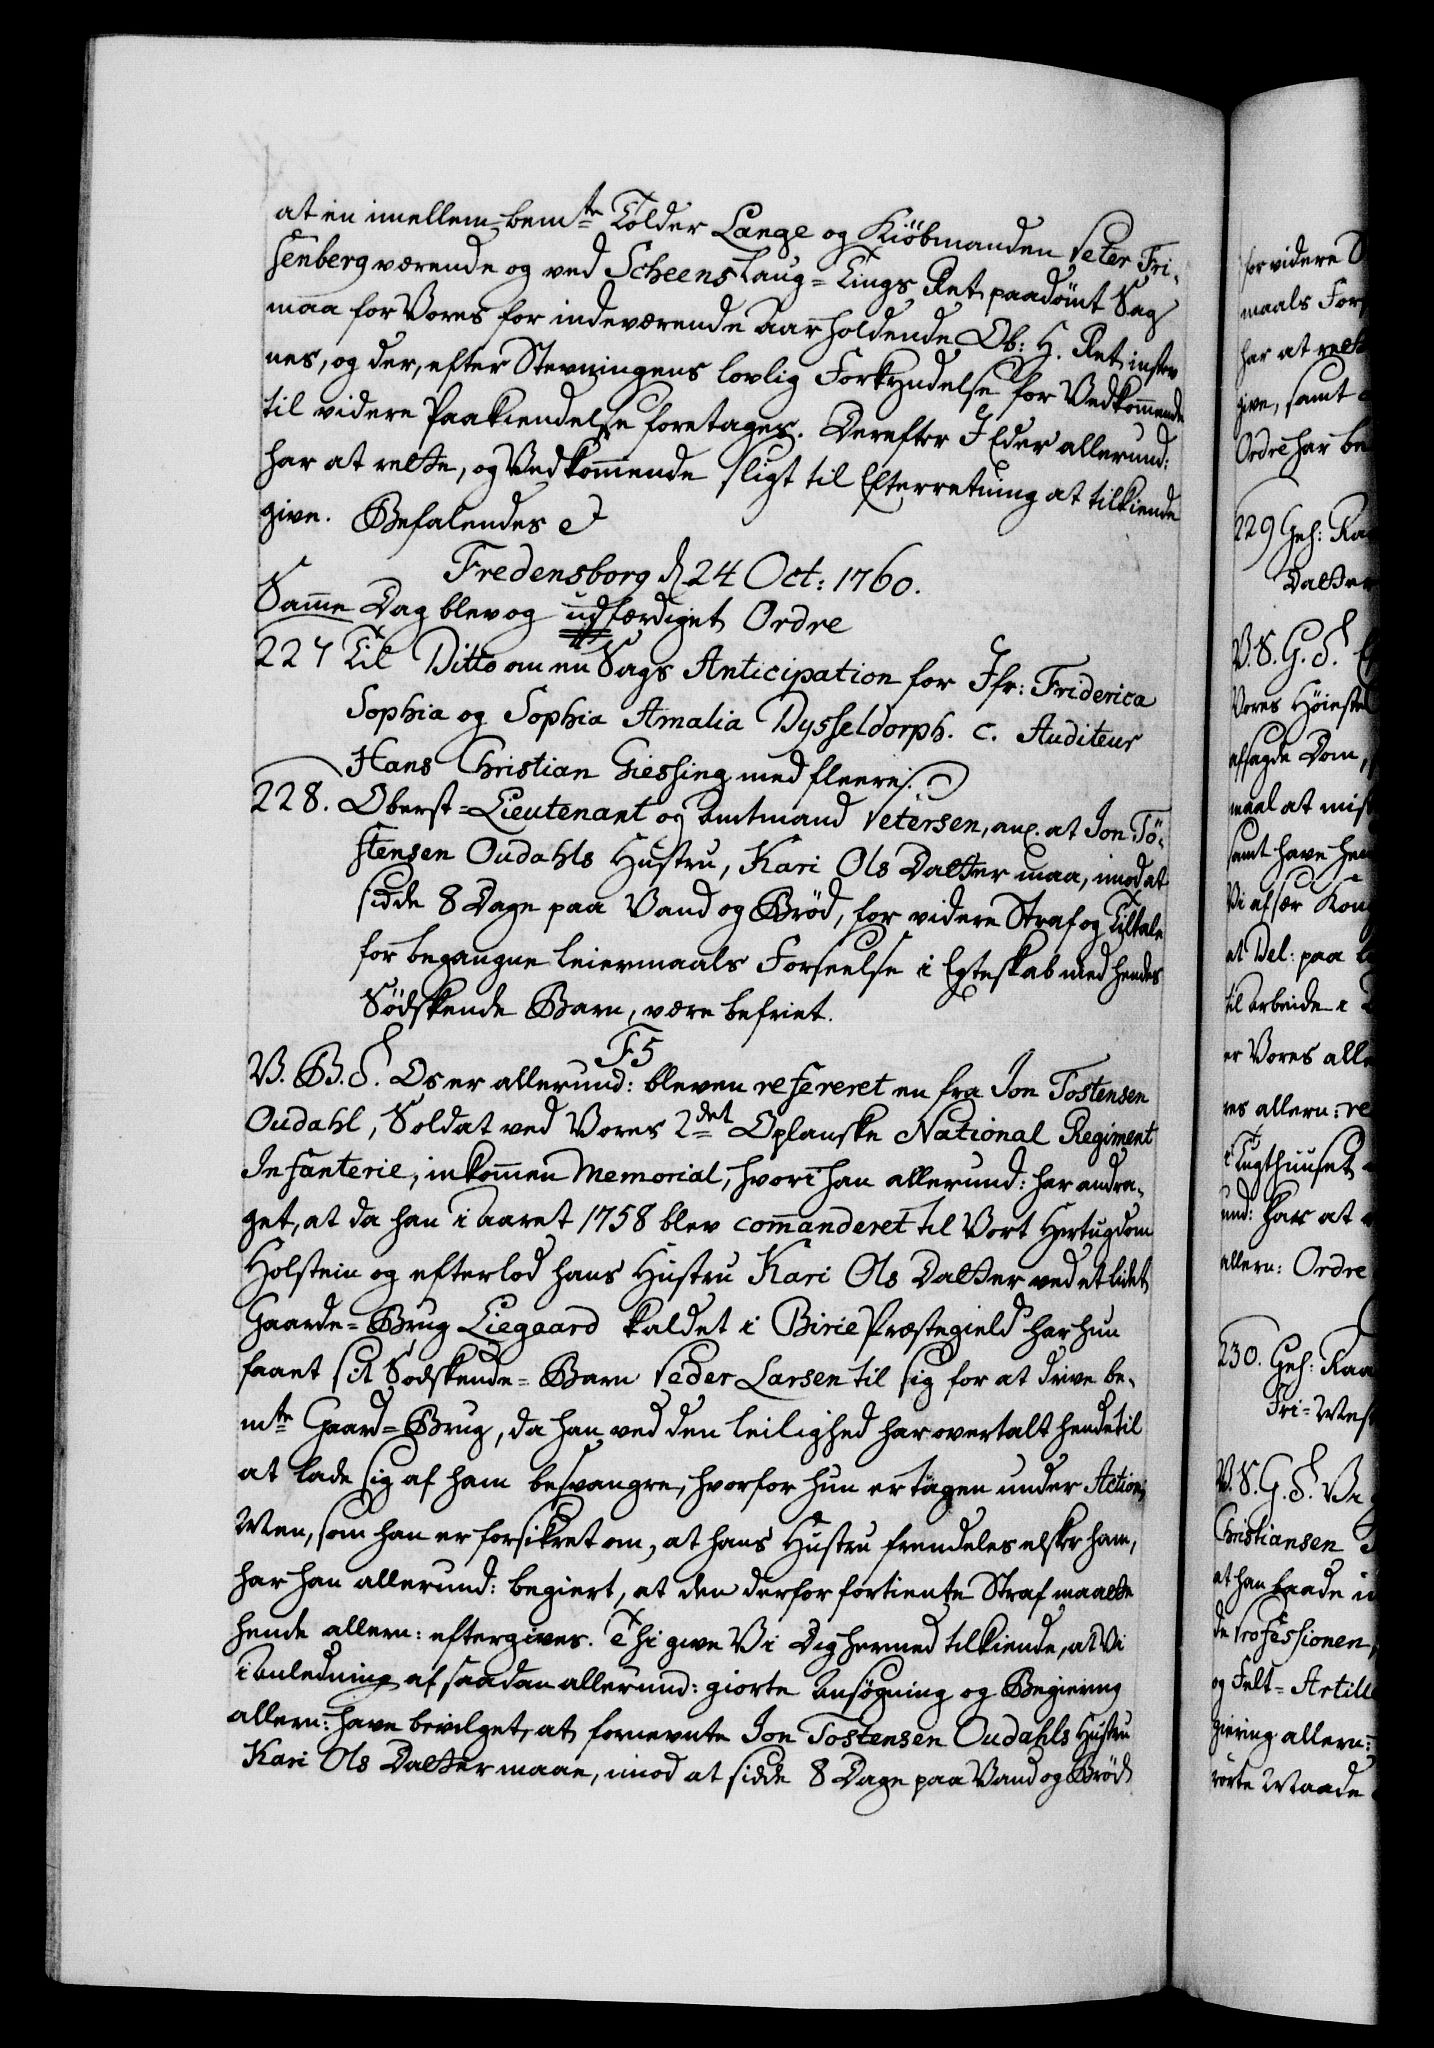 at en imellem bem:te Tolder Lange og Kiöbmanden Peter Fri-
senberg værende og ved Scheens Laug-Tings Ret paadömt Sag
maa for Vores for indeværende Aar holdende Ob: H. Ret instev
nes, og der, efter Stevningens lovlig Forkyndelse for Vedkom̄ende
til videre Paakiendelse foretages. Derefter I Eder allerund:
har at rette, og Vedkom̄ende sligt til Efterretning at tilkiende
give. Befalendes
Fredensborg d 24 Oct: 1760.
Sam̄e Dag blev og udfærdiget Ordre
227 Til Ditto om en Sags Anticipation for Jfr: Friderica
Sophia og Sophia Amalia Dysseldorph. c. Auditeur
Hans Christian Giessing med fleere.
228. Oberst-Lieutenant og Amtmand Petersen, ang. at Jon Tö-
stensen Oudahls Hustru, Kari Ols Datter maa, imod at
sidde 8 Dage paa Vand og Bröd, for videre Straf og Tiltale
for begangne Leiermaals Forseelse i Egteskab med hendes
Södskende Barn, være befriet.
F5
V. B. G. Os er allerund: bleven refereret en fra Jon Tostensen
Oudahl, Soldat ved Vores 2det Oplanske National Regiment
Infanterie, inkom̄en Memorial, hvori han allerund: har andra-
get, at da han i Aaret 1758 blev com̄anderet til Vort Hertugdom
Holstein og efterlod hans Hustru Kari Ols Datter ved et lidet
Gaarde-Brug Liegaard kaldet i Birie Præstegield har hun
faaet sit Sodskende-Barn Peder Larsen til sig for at drive be-
mte Gaard-Brug, da han ved den Leilighed har overtalt hende til
at lade sig af ham besvangre, hvorfor hun er tagen under Action;
Men, som han er forsikret om, at hans Hustru fremdeles elsker ham,
har han allerund: begiert, at den derfor fortiente Straf maatte
hende allern: eftergives. Thi give Vi Dig hermed tilkiende, at Vi
i Anledning af saadan allerund: giorte Ansøgning og Begiering
allern: have bevilget, at fornevnte Jon Tostensen Oudahls Hustru
Kari Ols Datter maae, imod at sidde 8 Dage paa Vand og Bröd
for videre
maals For
har at rette
give, samt
Ordre har be
229 Geh: Raa
Datter
V. S. G.
Vores Höieste
afsagde Dom,
maal at mis
samt have hen
Vi af sær Kong
at Del: paa
til arbeide i
er Vores alle
res allern: re
i Tugthuuset
und: har at
allern: Ordre
230. Geh: Raa
Fri-Mes
V. S. G. Vi
Christiansen
at han baade i
de Professionen,
og Felt-Artill
giering allern:
rörte Maade